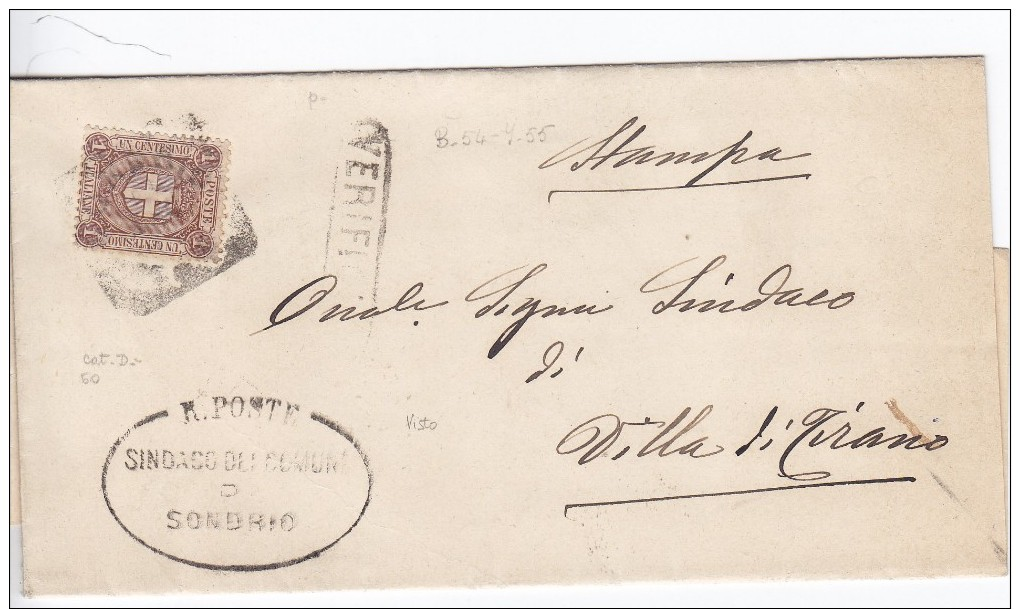 p.
B-54-Y-55
Stampa
UN CENTESIMO
POSTE
ITALIANE
UN CENTESIMO
1
1
1
1
VERIFI
Onole. Signor Sindaco
di
Villa di Tirano
cat. D.-
60
Visto
R. POSTE
SINDACO DEI COMUNI
D
SONDRIO